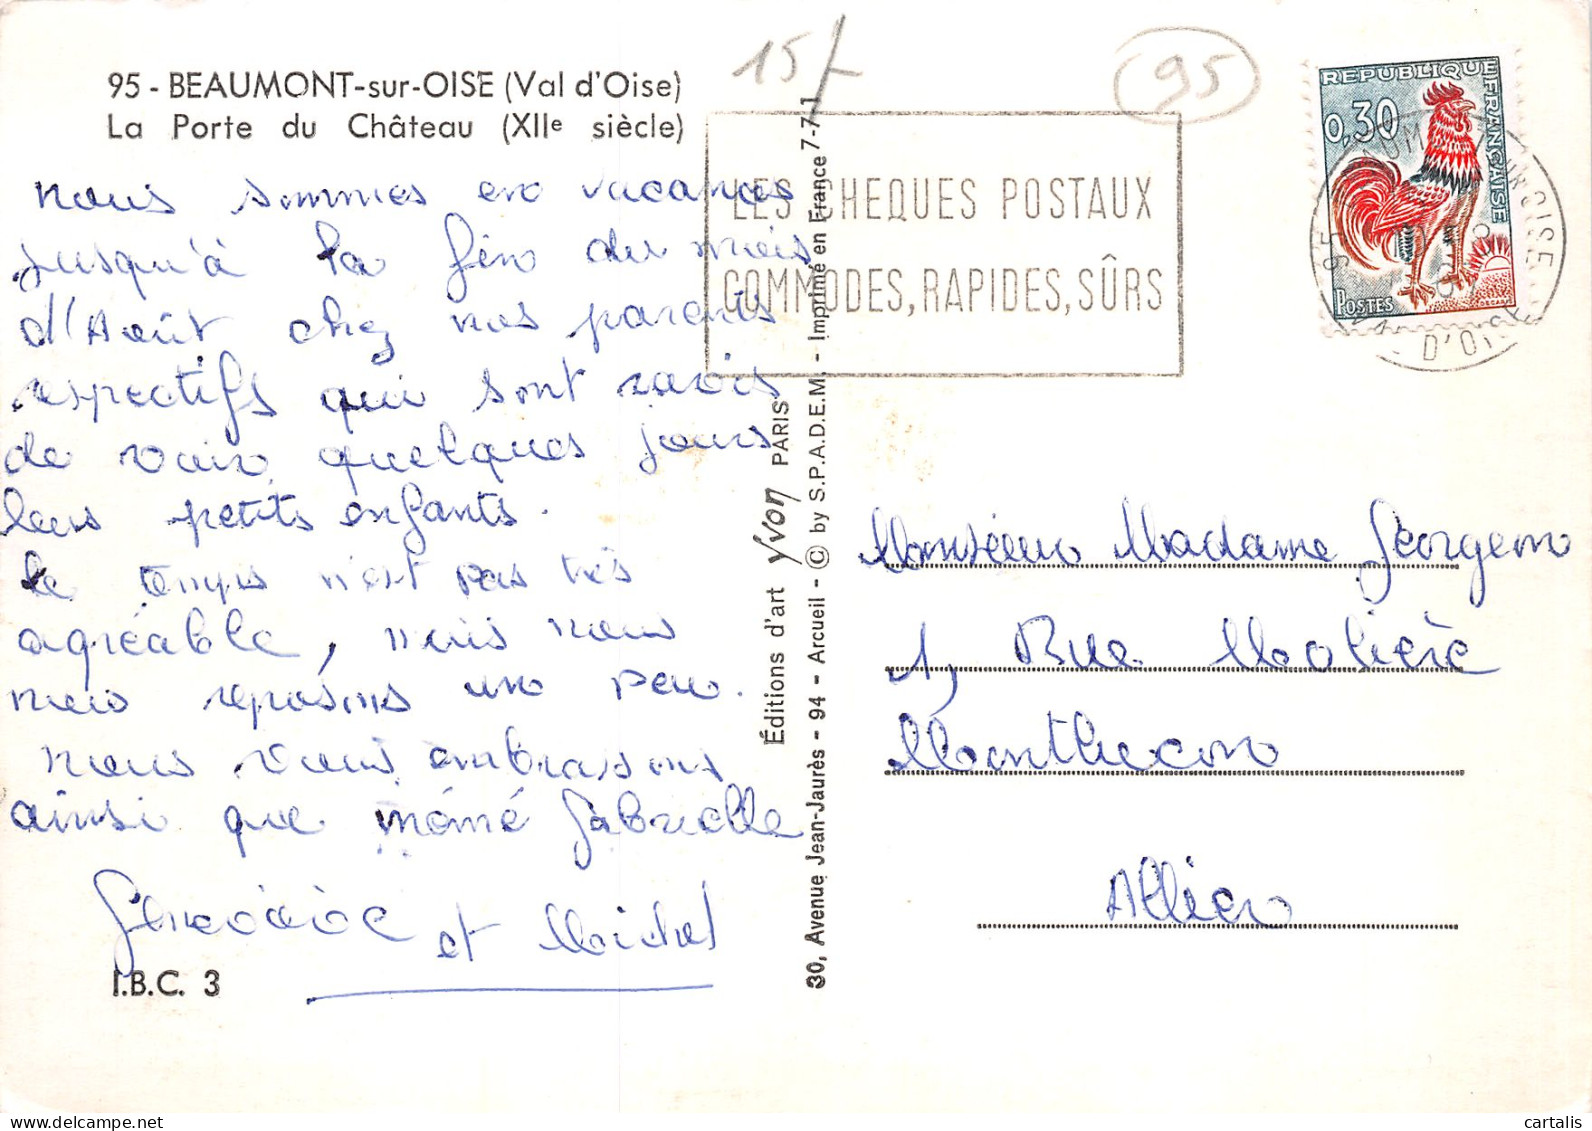 15f
95
95 - BEAUMONT-sur-OISE (Val d'Oise)
La Porte du Château (XIIe siècle)
nous sommes en vacances
jusqu'à la fin du mois
d'Août chez nos parents
respectifs qui sont ravis
de voir quelques jours
leurs petits enfants.
le temps n'est pas très
agréable, mais nous
nous reposons un peu.
nous vous embrassons
ainsi que mémé Gabrielle
Geneviève et Michel
I.B.C. 3
LES CHEQUES POSTAUX
COMMODES, RAPIDES, SÛRS
REPUBLIQUE FRANÇAISE
0,30
POSTES
OISE
95
D'OISE
Éditions d'art Yvon PARIS
30, Avenue Jean-Jaurès - 94 - Arcueil - © by S.P.A.D.E.M. - Imprimé en France 7-71
Monsieur Madame Georgeon
1, Rue Molière
Montlucon
Allier
cartalis